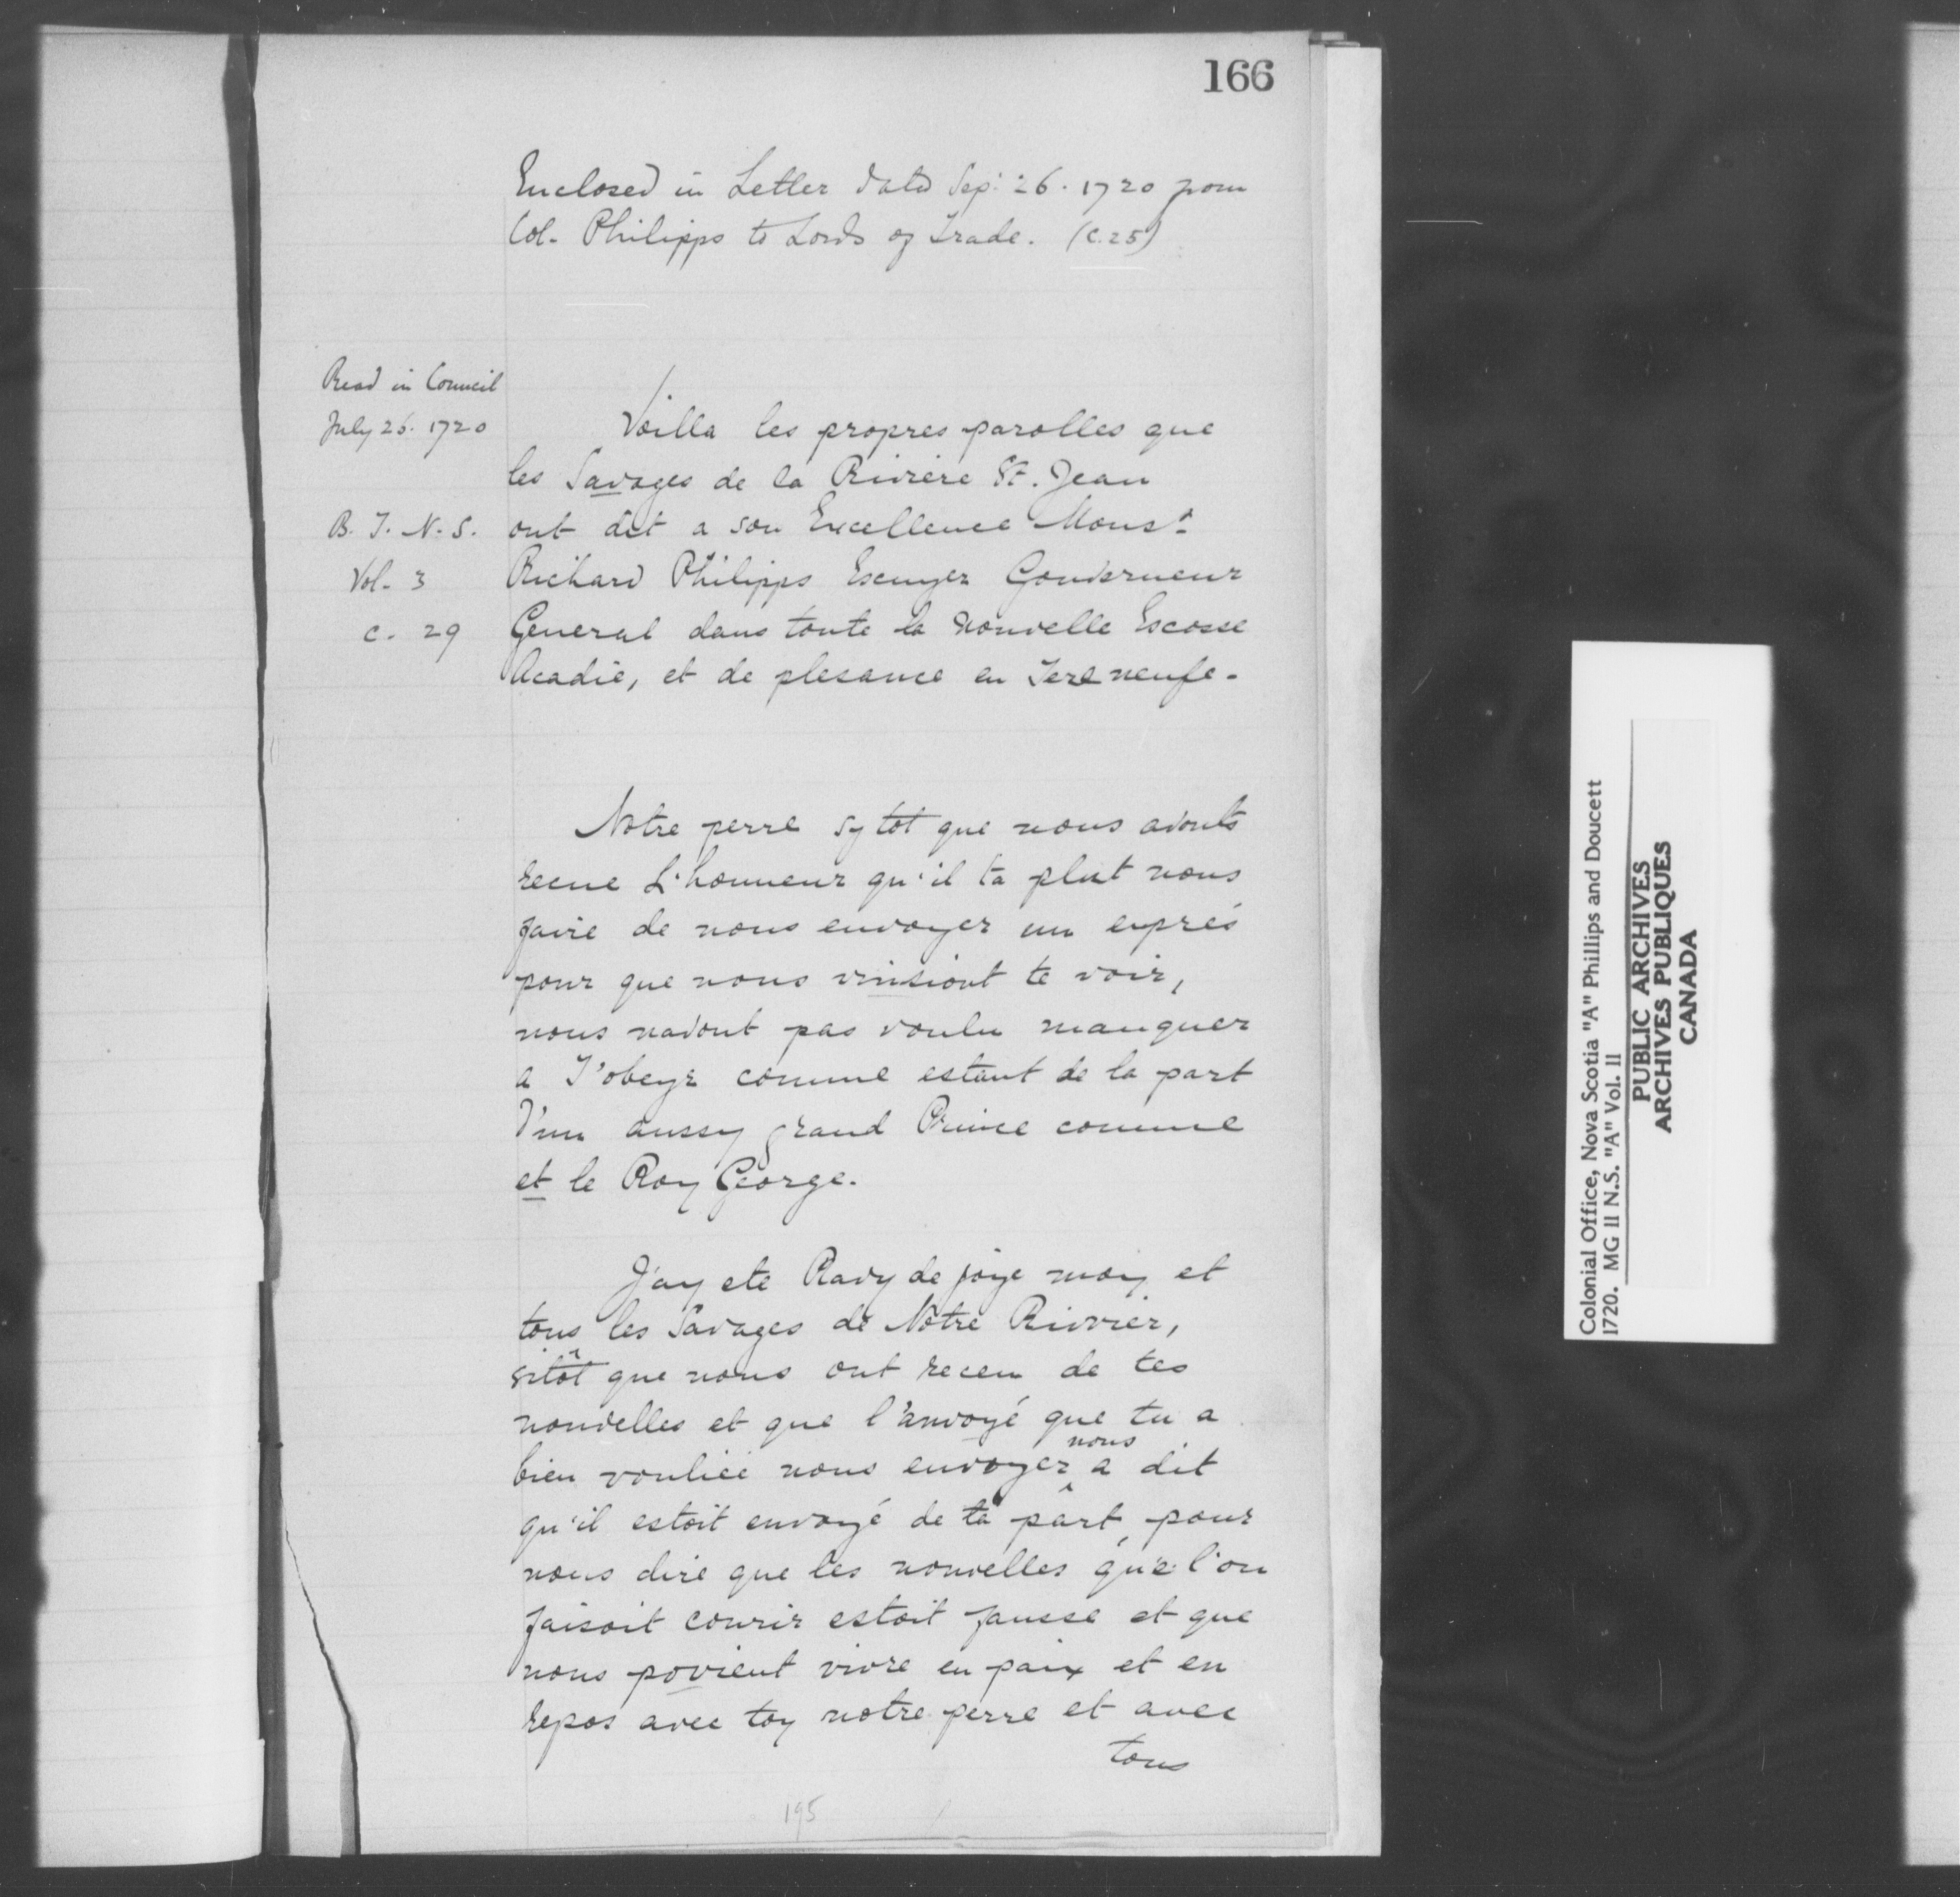 166
Enclosed in Letter dated Sep: 26. 1720 from
Col. Philipps to Lords of Trade. (C.25)
Read in Council
July 26. 1720
B. T. N. S.
Vol. 3
c. 29
Voilla les propres parolles que
les Savages de la Riviere St. Jean
ont dit a son Excellence Monsr.
Richard Philipps Escuyer Gouverneur
General dans toute la nouvelle Escosse
Acadie, et de plesance en Tere neufe.
Notre perre sy tot que nous avonts
recue L'honneur qu'il ta plut nous
faire de nous envoyer un exprés
pour que nous vinsiont te voir,
nous navont pas voulu manquer
a T'obeyr comme estant de la part
d'un aussy grand Prince comme
et le Roy George.
J'ay ete Ravy de joye moy et
tous les Savages de Notre Rivrier,
sitôt que nous ont receu de tes
nouvelles et que l'anvoyé que tu a
bien vouliee nous envoyer nous a dit
qu'il estoit envoyé de ta part pour
nous dire que les nouvelles que l'on
faisoit courir estoit fausse et que
nous povient vivre en paix et en
repos avec toy notre perre et avec
tous
195
Colonial Office, Nova Scotia "A" Phillips and Doucett
1720. MG 11 N.S. "A" Vol. 11
PUBLIC ARCHIVES
ARCHIVES PUBLIQUES
CANADA